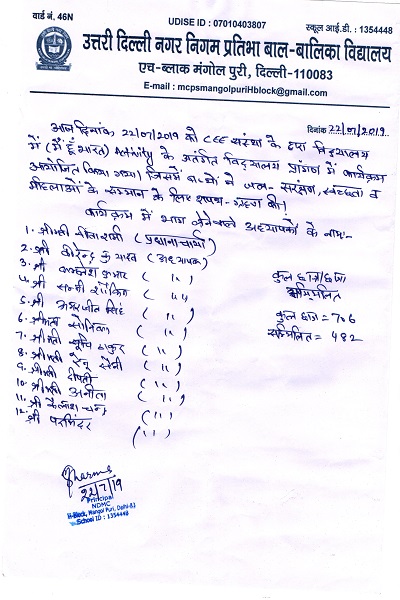 वार्ड नं. 46N
UDISE ID : 07010403807
स्कूल आई.डी. : 1354448
उत्तरी दिल्ली नगर निगम प्रतिभा बाल-बालिका विद्यालय
एच-ब्लाक मंगोल पुरी, दिल्ली-110083
E-mail : mcpsmangolpuriHblock@gmail.com
दिनांक 22/07/2019
आज दिनांक 22/07/2019 को CEE संस्था के द्वारा विद्यालय
में (मैं हूँ भारत) Activity के अंतर्गत विद्यालय प्रांगण में कार्यक्रम
आयोजित किया गया। जिसमें बच्चों ने जल-संरक्षण, स्वच्छता व
महिलाओं के सम्मान के लिए शपथ-ग्रहण की।
कार्यक्रम में भाग लेनेवाले अध्यापकों के नाम:-
1. श्रीमती शर्मा (प्रधानाचार्या)
2. श्री वीरेन्द्र कुमार (अध्यापक)
3. श्री कुमार ( " )
4. श्री सन्नी शौकिन ( " )
5. श्री अमरजीत सिंह ( " )
6. श्रीमती ( " )
7. श्रीमती ठाकुर ( " )
8. श्रीमती रेनू सैनी ( " )
9. श्रीमती दीप्ती ( " )
10. श्रीमती अनीता ( " )
11. श्री कैलाश चन्द ( " )
12. श्री परमिंदर ( " )
कुल छात्र/छात्रा
सम्मिलित
कुल छात्र = 706
सम्मिलित = 482
Sharma
22/7/19
Principal
NDMC
H-Block, Mangol Puri, Delhi-83
School ID : 1354448